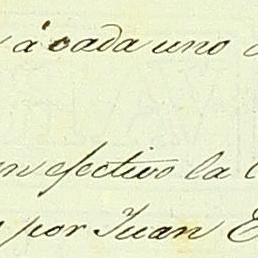 á cada uno
en efectivo la
por Juan E